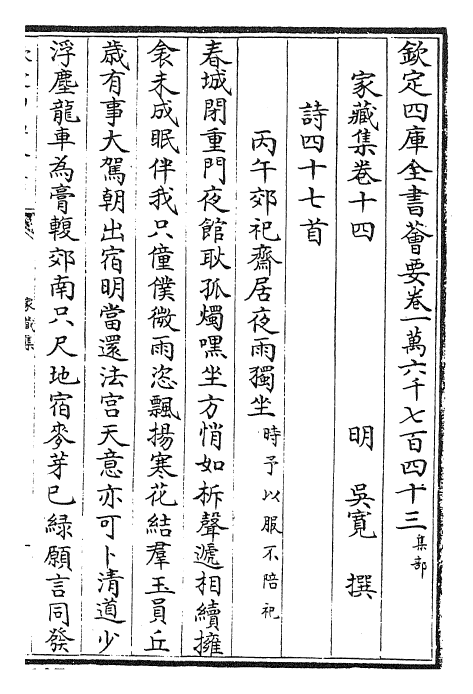 欽定四庫全書薈要卷一萬六千七百四十三集部
家藏集卷十四　明　吳寬　撰
詩四十七首
丙午郊祀齋居夜雨獨坐時予以服不陪祀
春城閉重門夜館耿孤燭嘿坐方悄如柝聲遞相續擁
衾未成眠伴我只僮僕微雨恣飄揚寒花結羣玉員丘
歲有事大駕朝出宿明當還法宮天意亦可卜清道少
浮塵龍車為膏輹郊南只尺地宿麥芽已綠願言同發
家藏集